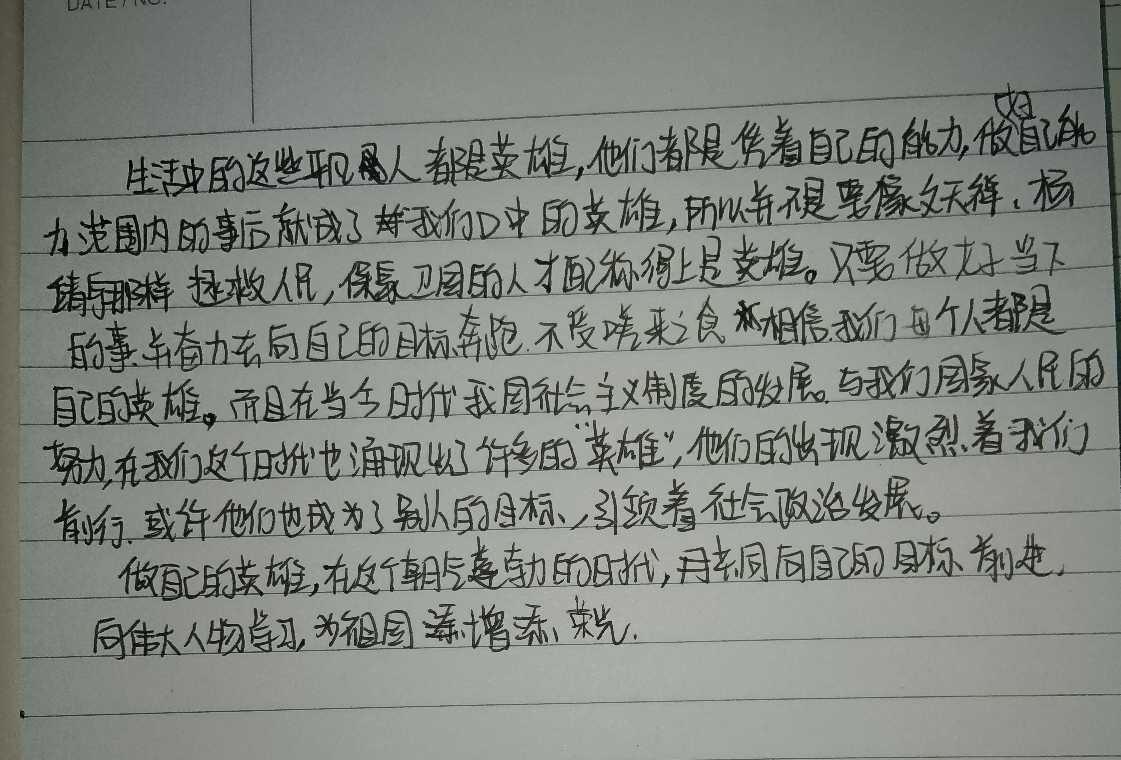 DATE / NO.
生活中的这些平凡人都是英雄,他们都是凭着自己的能力,做好自己能
力范围内的事后就成了我们口中的英雄,所以并不是要像文天祥、杨
靖宇那样拯救人民,保家卫国的人才配称得上是英雄。只要做好当下
的事.并奋力去向自己的目标奔跑.不受嗟来之食 相信.我们每个人都是
自己的英雄。而且在当今时代我国社会主义制度的发展。与我们国家人民的
努力,在我们这个时代也涌现出了许多的“英雄”,他们的出现激烈着我们
前行.或许他们也成为了别人的目标、引领着社会政治发展。
做自己的英雄,在这个朝气蓬勃的时代,去向自己的目标前进,
向伟大人物学习,为祖国添增添荣光.